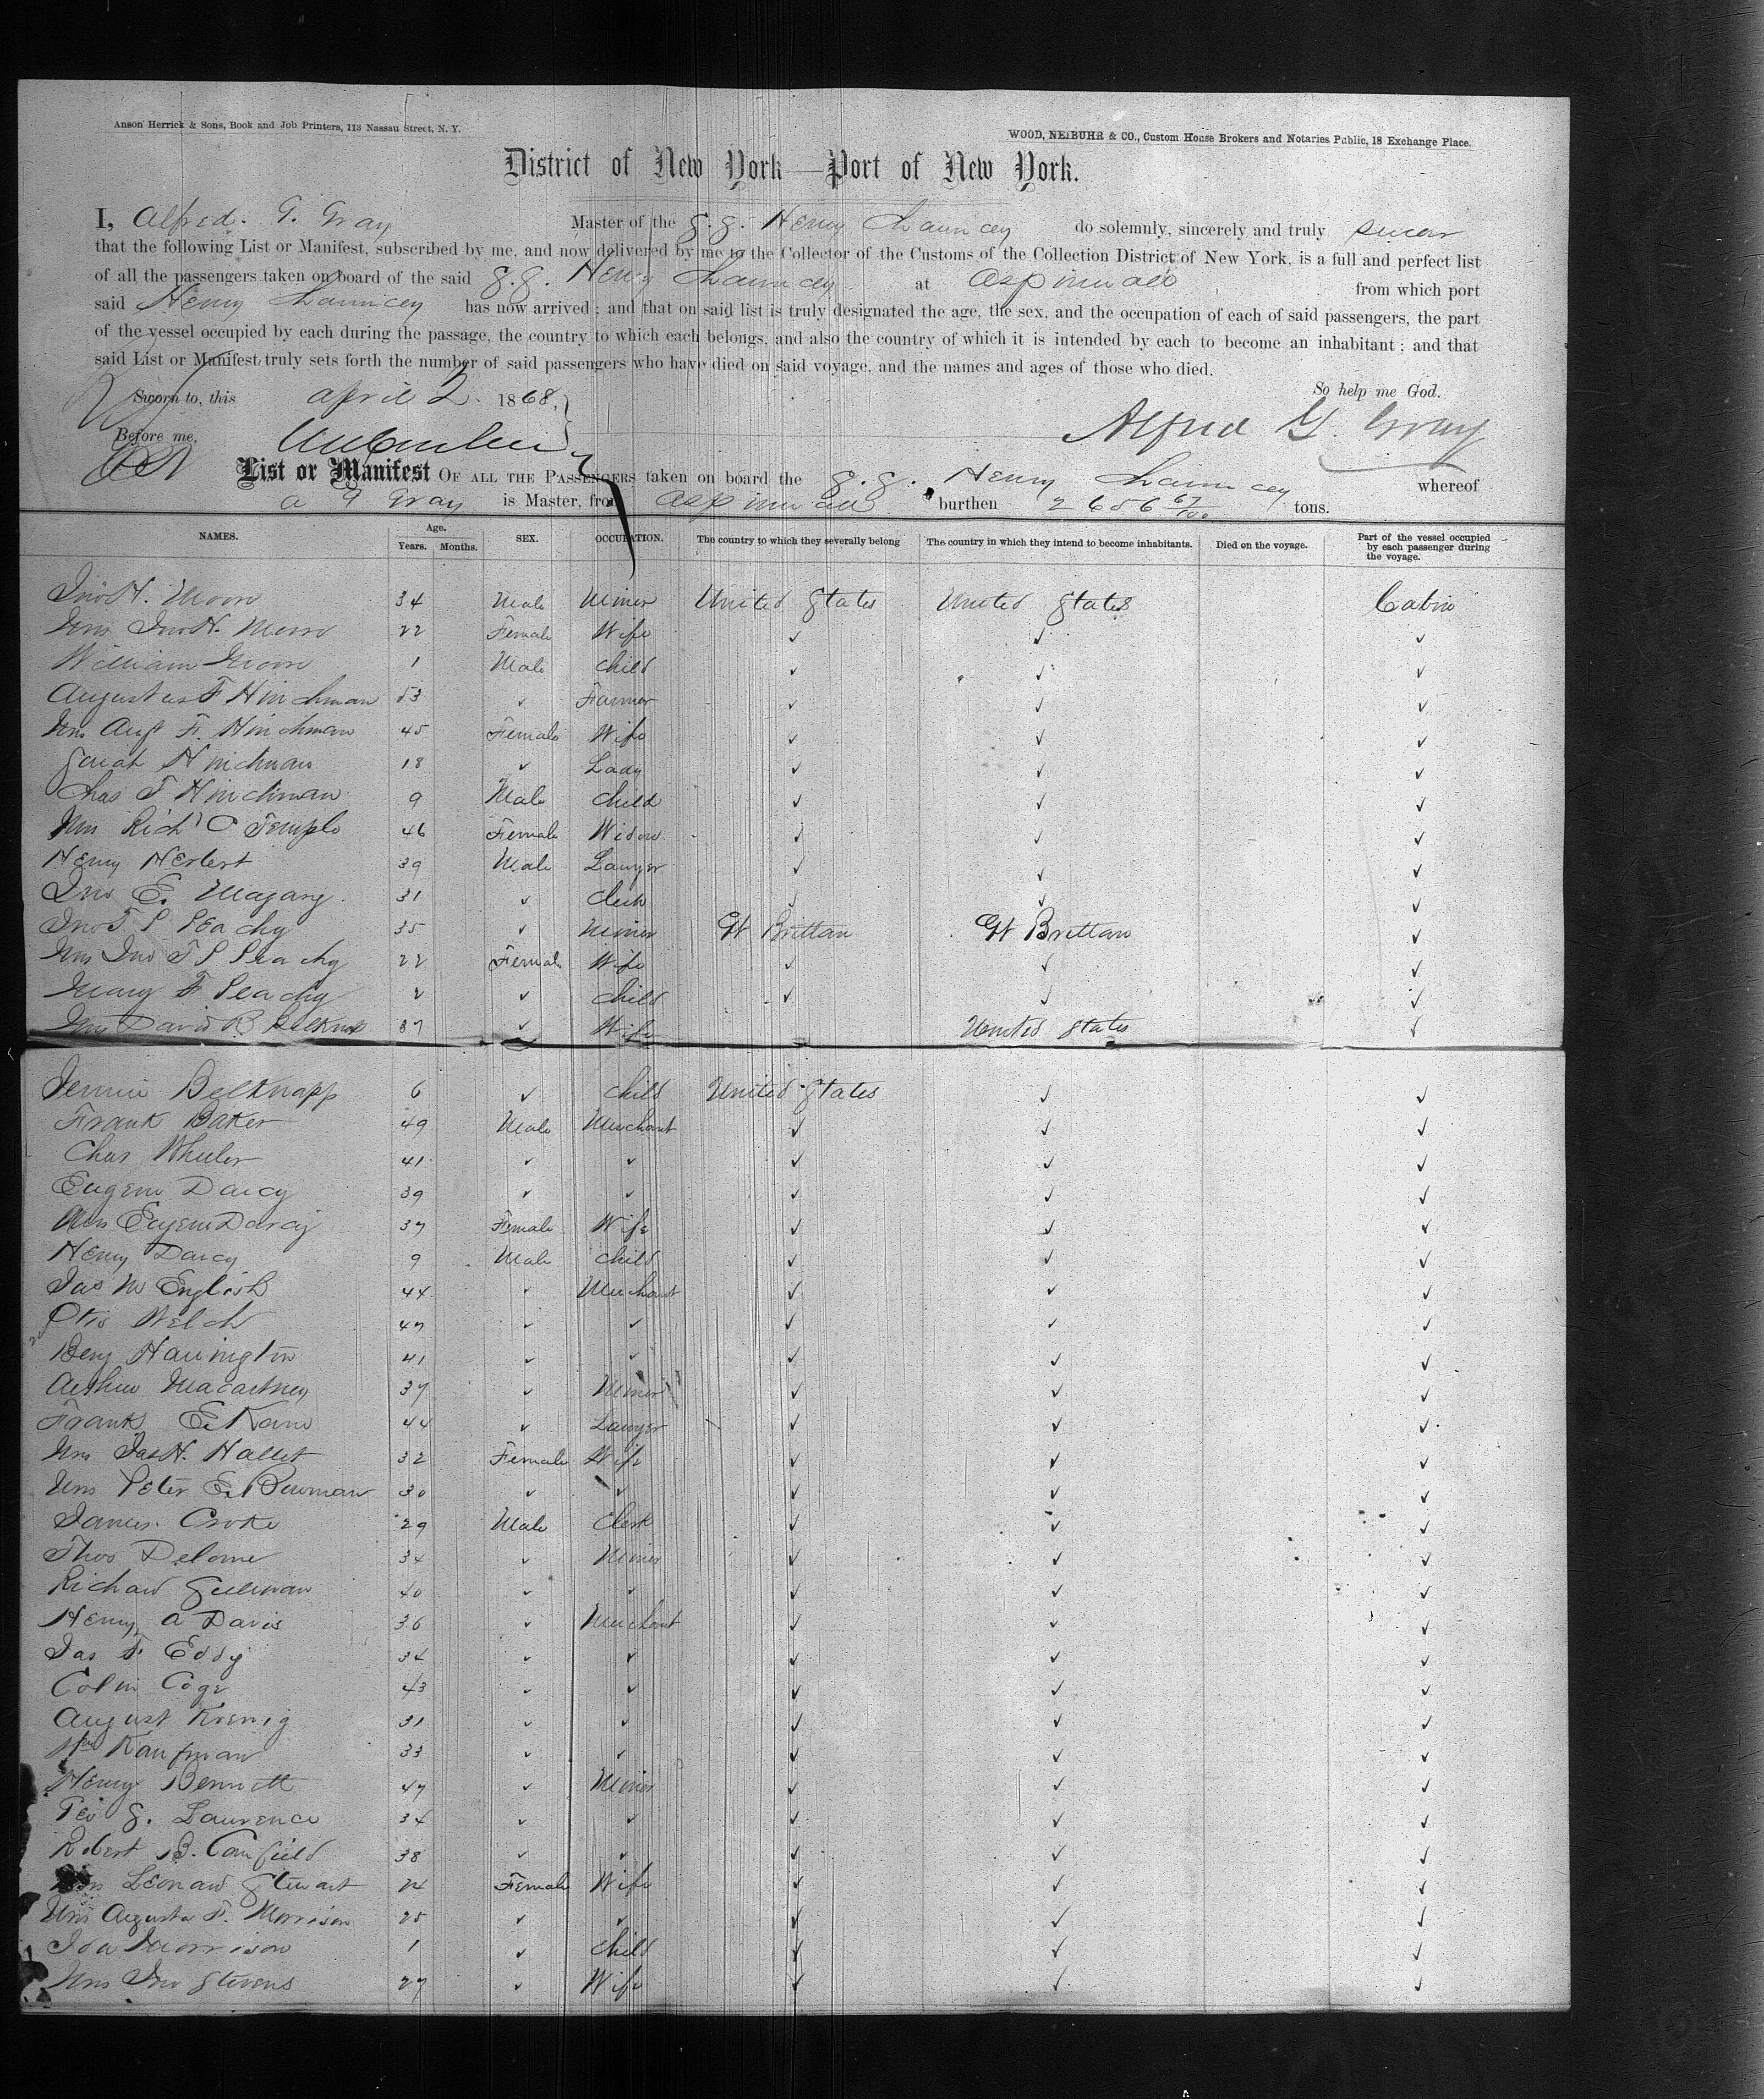 Anson Herrick & Sons, Book and Job Printers, 113 Nassau Street, N. Y.
WOOD, NEIBUHR & CO., Custom House Brokers and Notaries Public, 18 Exchange Place.
District of New York—Port of New York.
I, Alfred. G. Gray Master of the S.S. Henry Chauncey do solemnly, sincerely and truly swear
that the following List or Manifest, subscribed by me, and now delivered by me to the Collector of the Customs of the Collection District of New York, is a full and perfect list
of all the passengers taken on board of the said S.S. Henry Chauncey at Aspinwall from which port
said Henry Chauncey has now arrived; and that on said list is truly designated the age, the sex, and the occupation of each of said passengers, the part
of the vessel occupied by each during the passage, the country to which each belongs, and also the country of which it is intended by each to become an inhabitant; and that
said List or Manifest truly sets forth the number of said passengers who have died on said voyage, and the names and ages of those who died.
So help me God.
Sworn to, this April 2. 1868.
Alfred G. Gray
Before me,
List or Manifest OF ALL THE PASSENGERS taken on board the S.S. Henry Chauncey whereof
A G Gray is Master, from Aspinwall burthen 2656 67/100 tons.
NAMES. Age. Years. Months. SEX. OCCUPATION. The country to which they severally belong The country in which they intend to become inhabitants. Died on the voyage. Part of the vessel occupied by each passenger during the voyage.
Jno H. Moore 34 Male Miner United States United States Cabin
Mrs Jno H. Moore 22 Female Wife ✓ ✓ ✓
William Moore 1 Male Child ✓ ✓ ✓
Augustus F Hinchman 53 ✓ Farmer ✓ ✓ ✓
Mrs Augt F. Hinchman 45 Female Wife ✓ ✓ ✓
Sarah Hinchman 18 ✓ Lady ✓ ✓ ✓
Chas F Hinchman 9 Male Child ✓ ✓ ✓
Mrs Richd C Temple 46 Female Widow ✓ ✓ ✓
Henry Herbert 39 Male Lawyer ✓ ✓ ✓
Jno E. Magary 31 ✓ Clerk ✓ ✓ ✓
Jno T P Peachy 35 ✓ Miner Gt Brittan Gt Brittan ✓
Mrs Jno T P Peachy 22 Female Wife ✓ ✓ ✓
Mary F Peachy 2 ✓ Child ✓ ✓ ✓
Mrs David B Belknap 37 ✓ Wife ✓ United States ✓
Jennie Belknapp 6 ✓ Child United States ✓ ✓
Frank Baker 49 Male Merchant ✓ ✓ ✓
Chas Wheeler 41 ✓ ✓ ✓ ✓ ✓
Eugene Darcy 39 ✓ ✓ ✓ ✓ ✓
Mrs Eugene Darcy 37 Female Wife ✓ ✓ ✓
Henry Darcy 9 Male Child ✓ ✓ ✓
Jas M English 44 ✓ Merchant ✓ ✓ ✓
Otis Welch 47 ✓ ✓ ✓ ✓ ✓
Benj Harrington 41 ✓ ✓ ✓ ✓ ✓
Arthur Macartney 37 ✓ Miner ✓ ✓ ✓
Frank E. Kane 44 ✓ Lawyer ✓ ✓ ✓
Mrs Jas H. Hallet 32 Female Wife ✓ ✓ ✓
Mrs Peter E. Bowman 30 ✓ ✓ ✓ ✓ ✓
James Croke 29 Male Clerk ✓ ✓ ✓
Thos Delome 34 ✓ Miner ✓ ✓ ✓
Richard 40 ✓ ✓ ✓ ✓ ✓
Henry A Davis 36 ✓ Merchant ✓ ✓ ✓
Jas F. Eddy 34 ✓ ✓ ✓ ✓ ✓
Colin Coge 43 ✓ ✓ ✓ ✓ ✓
August Koenig 31 ✓ ✓ ✓ ✓ ✓
Kaufman 33 ✓ ✓ ✓ ✓ ✓
Henry Bennett 47 ✓ Miner ✓ ✓ ✓
Geo S. Laurence 34 ✓ ✓ ✓ ✓ ✓
Robert B. Canfield 38 ✓ ✓ ✓ ✓ ✓
Mrs Leonard Stewart 24 Female Wife ✓ ✓ ✓
Mrs Augusta F. Morrison 25 ✓ ✓ ✓ ✓ ✓
Ida Morrison 1 ✓ Child ✓ ✓ ✓
Mrs Jno Stevens 27 ✓ Wife ✓ ✓ ✓